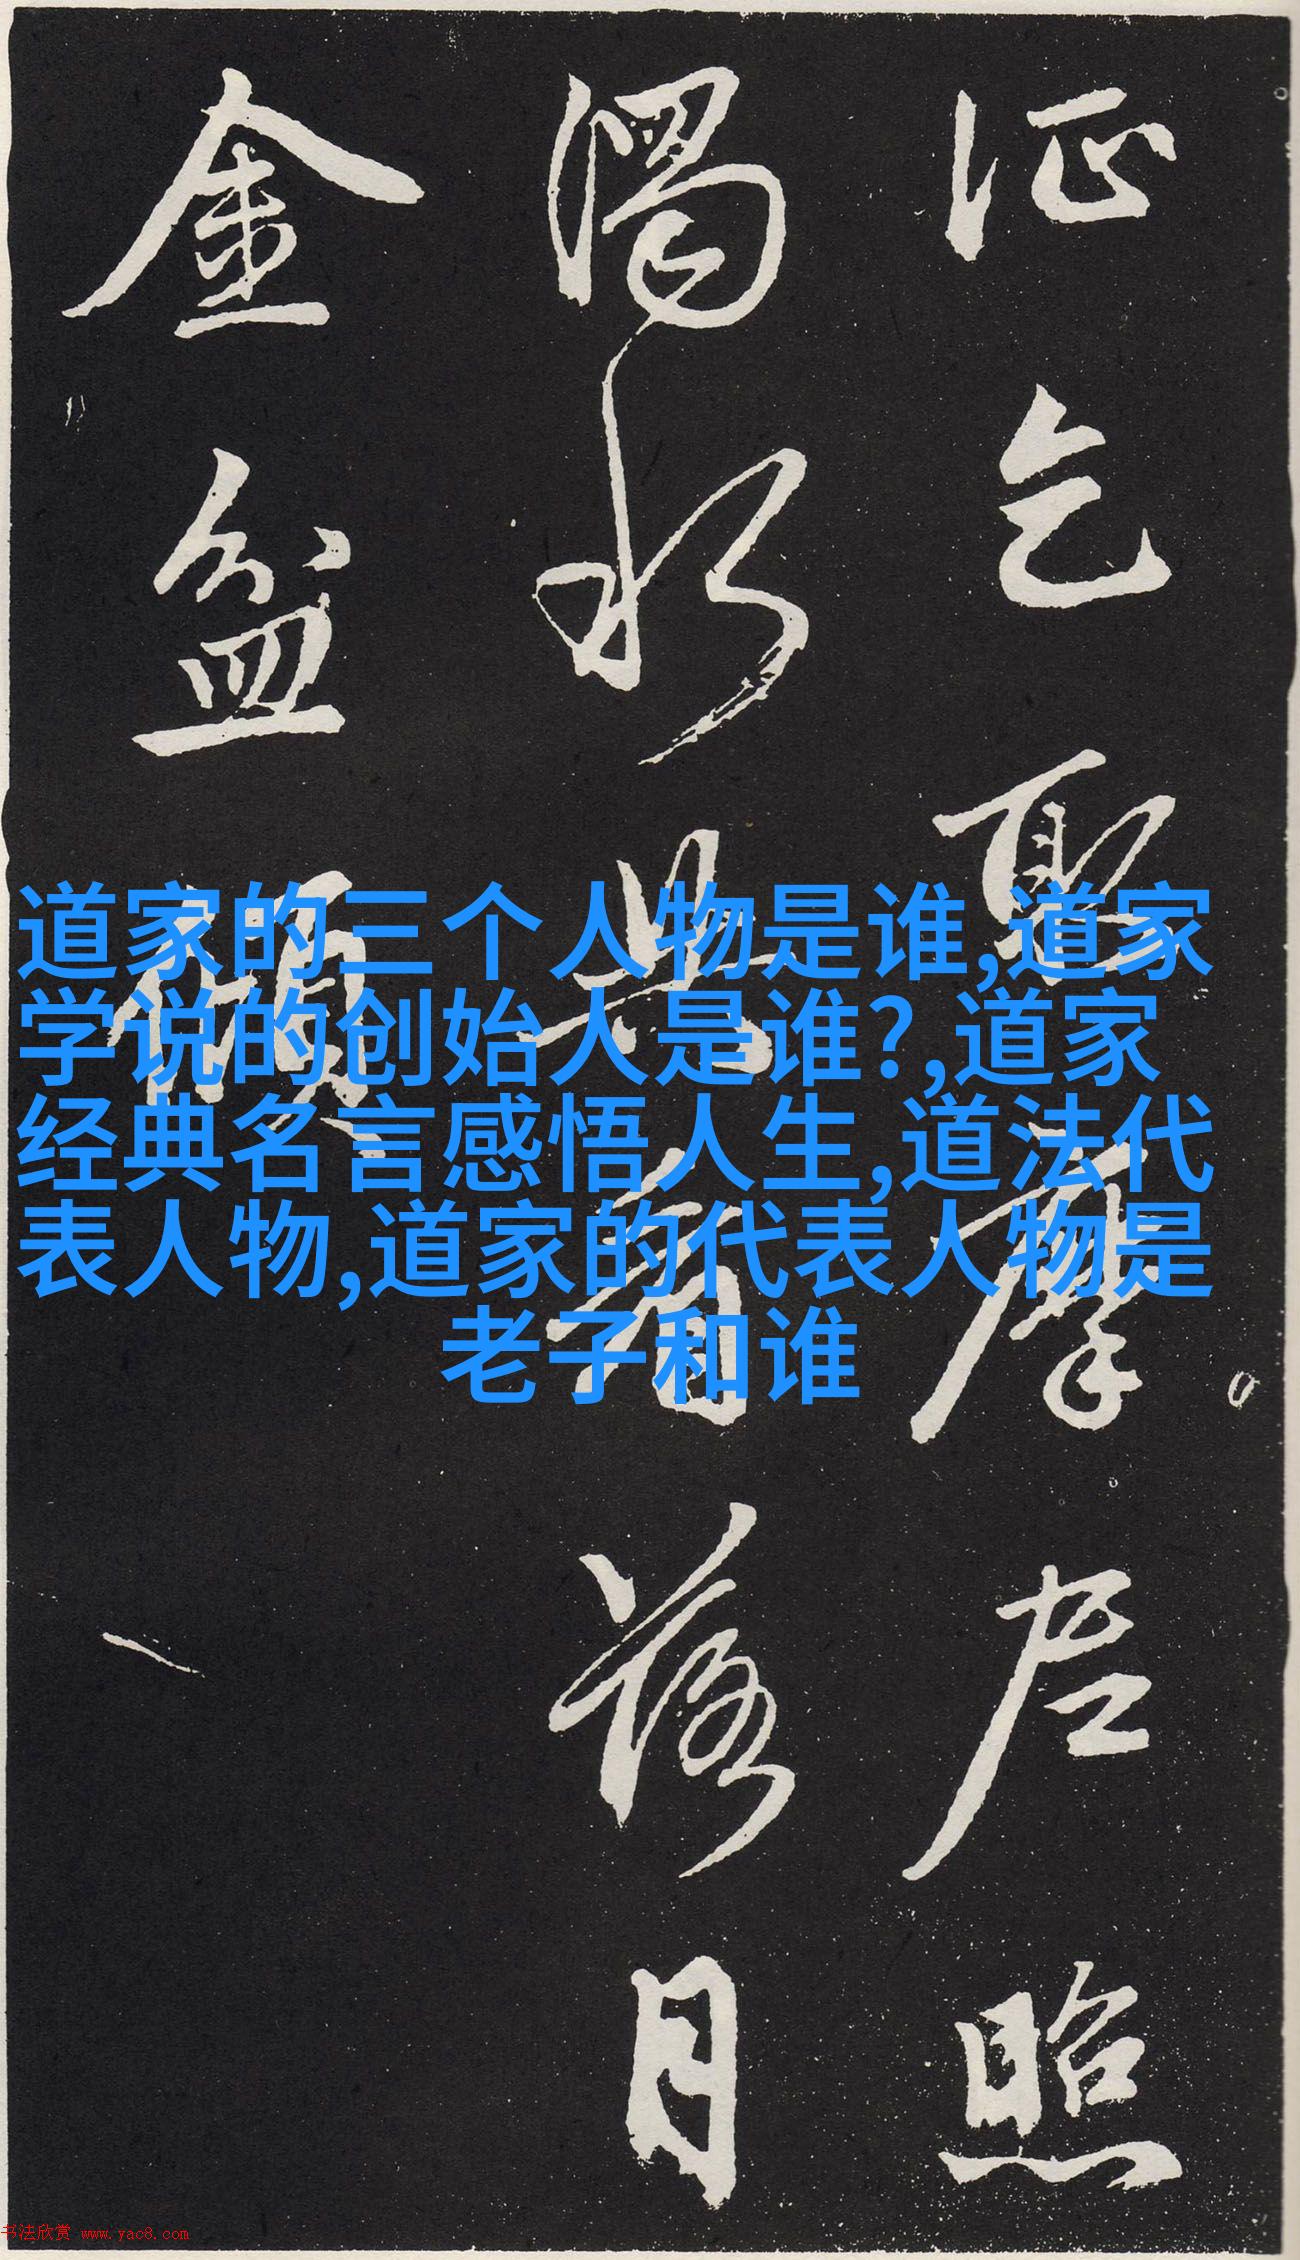 泜乞聖摩尼照
濁水共看落月
金盆傾
道家的三个人物是谁,道家
学说的创始人是谁?,道家
经典名言感悟人生,道法代
表人物,道家的代表人物是
老子和谁
书法欣赏 www.yac8.com